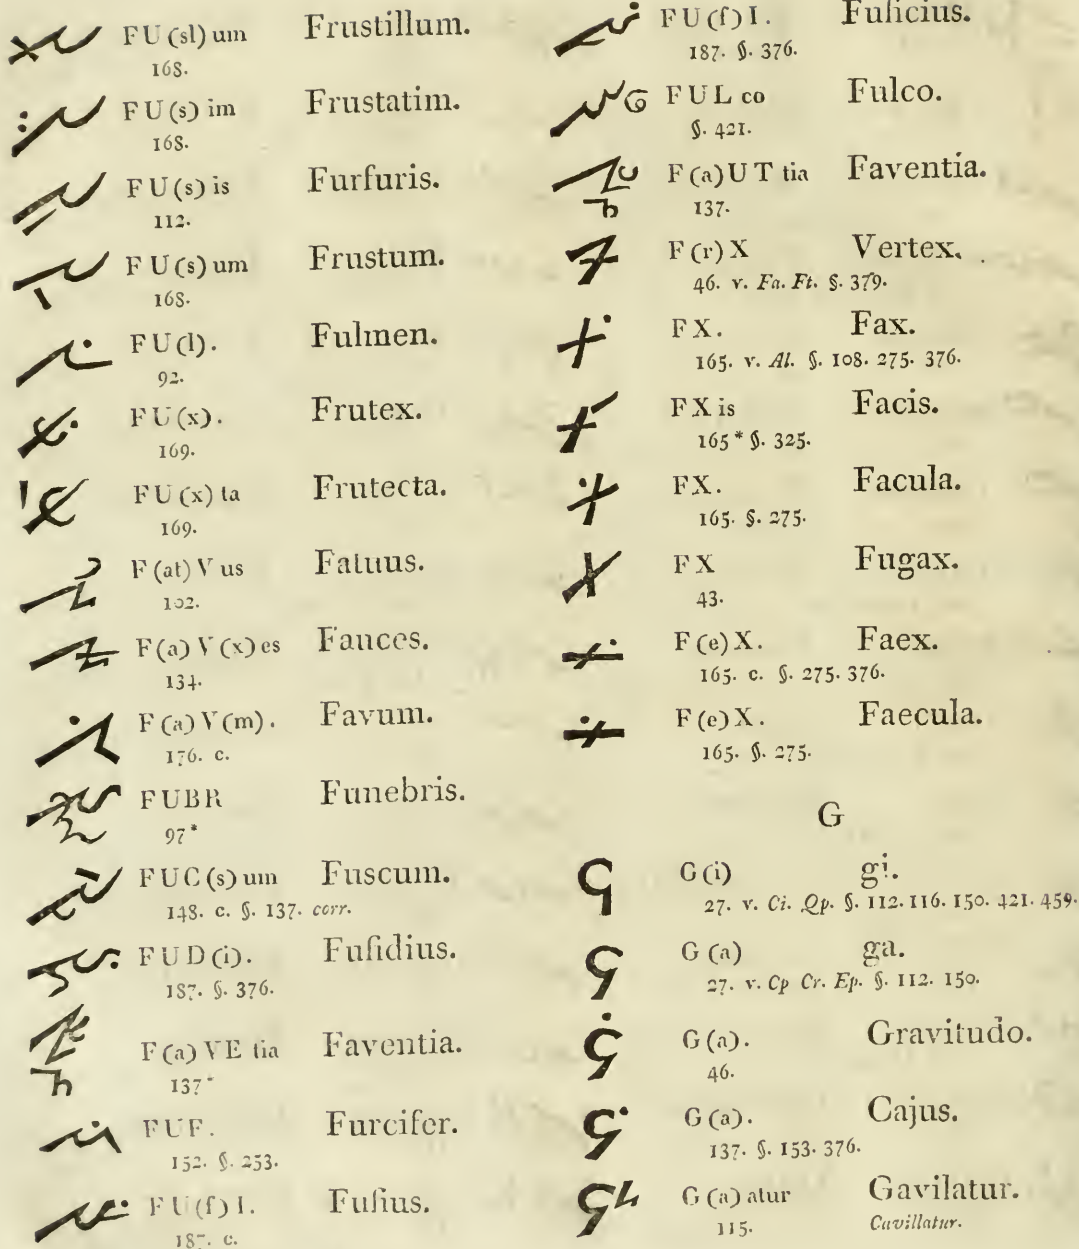 FU(sl)um Frustillum.
168.
FU(s)im Frustatim.
168.
FU(s)is Furfuris.
112.
FU(s)um Frustum.
168.
FU(l). Fulmen.
92.
FU(x). Frutex.
169.
FU(x)ta Frutecta.
169.
F(at)Vus Fatuus.
102.
F(a)V(x)es Fauces.
134.
F(a)V(m). Favum.
176. c.
FUBR Funebris.
97*
FUC(s)um Fuscum.
148. c. §. 137. corr.
FUD(i). Fuſidius.
187. §. 376.
F(a)VE tia Faventia.
137*
FUF. Furcifer.
152. §. 253.
FU(ſ)I. Fuſius.
187. c.
FU(ſ)I. Fuſicius.
187. §. 376.
FUL co Fulco.
§. 421.
F(a)UT tia Faventia.
137.
F(r)X Vertex.
46. v. Fa. Ft. §. 379.
FX. Fax.
165. v. Al. §. 108. 275. 376.
FX is Facis.
165* §. 325.
FX. Facula.
165. §. 275.
FX Fugax.
43.
F(e)X. Faex.
165. c. §. 275. 376.
F(e)X. Faecula.
165. §. 275.
G
G(i) gi.
27. v. Ci. Qp. §. 112. 116. 150. 421. 459.
G(a) ga.
27. v. Cp Cr. Ep. §. 112. 150.
G(a). Gravitudo.
46.
G(a). Cajus.
137. §. 153. 376.
G(a)atur Gavilatur.
115. Cavillatur.